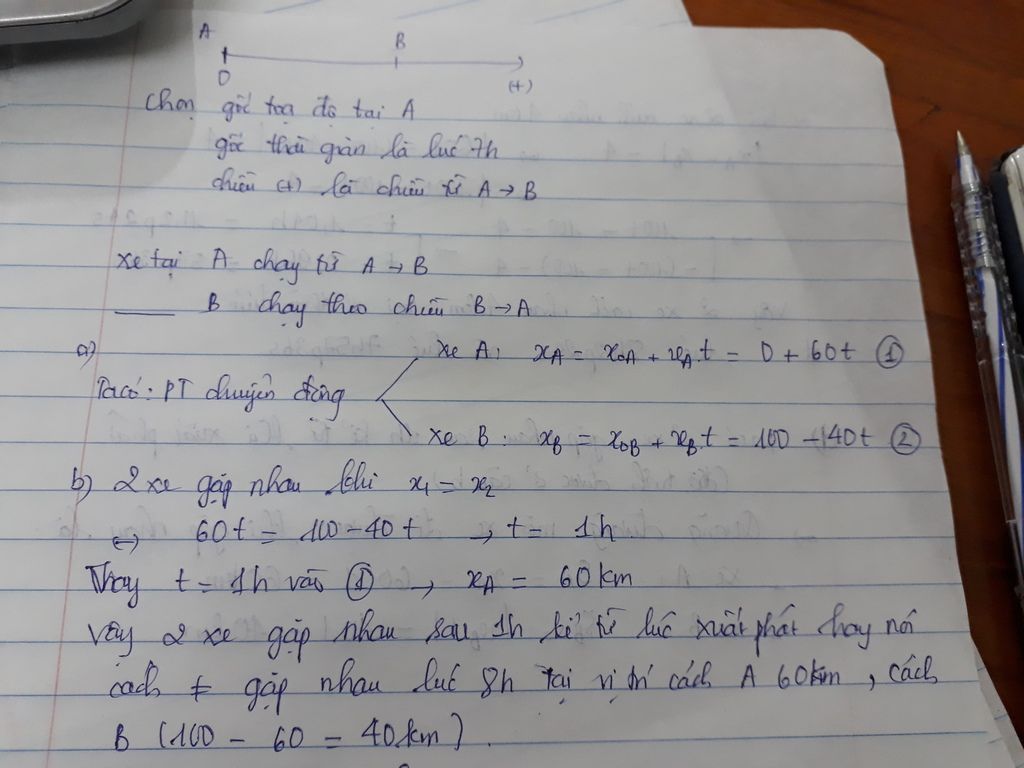 A B
O (+)
Chọn gốc tọa độ tại A
gốc thời gian là lúc 7h
chiều (+) là chiều từ A → B
xe tại A chạy từ A → B
____ B chạy theo chiều B → A
a)
xe A: xA = x0A + vA t = 0 + 60t ①
Ta có: PT chuyển động
xe B: xB = x0B + vB t = 100 - 40t ②
b) 2 xe gặp nhau khi x1 = x2
⇔ 60t = 100 - 40t → t = 1h
Thay t = 1h vào ① → xA = 60km
Vậy 2 xe gặp nhau sau 1h kể từ lúc xuất phát hay nói
cách ≠ gặp nhau lúc 8h tại vị trí cách A 60km, cách
B (100 - 60 = 40km).